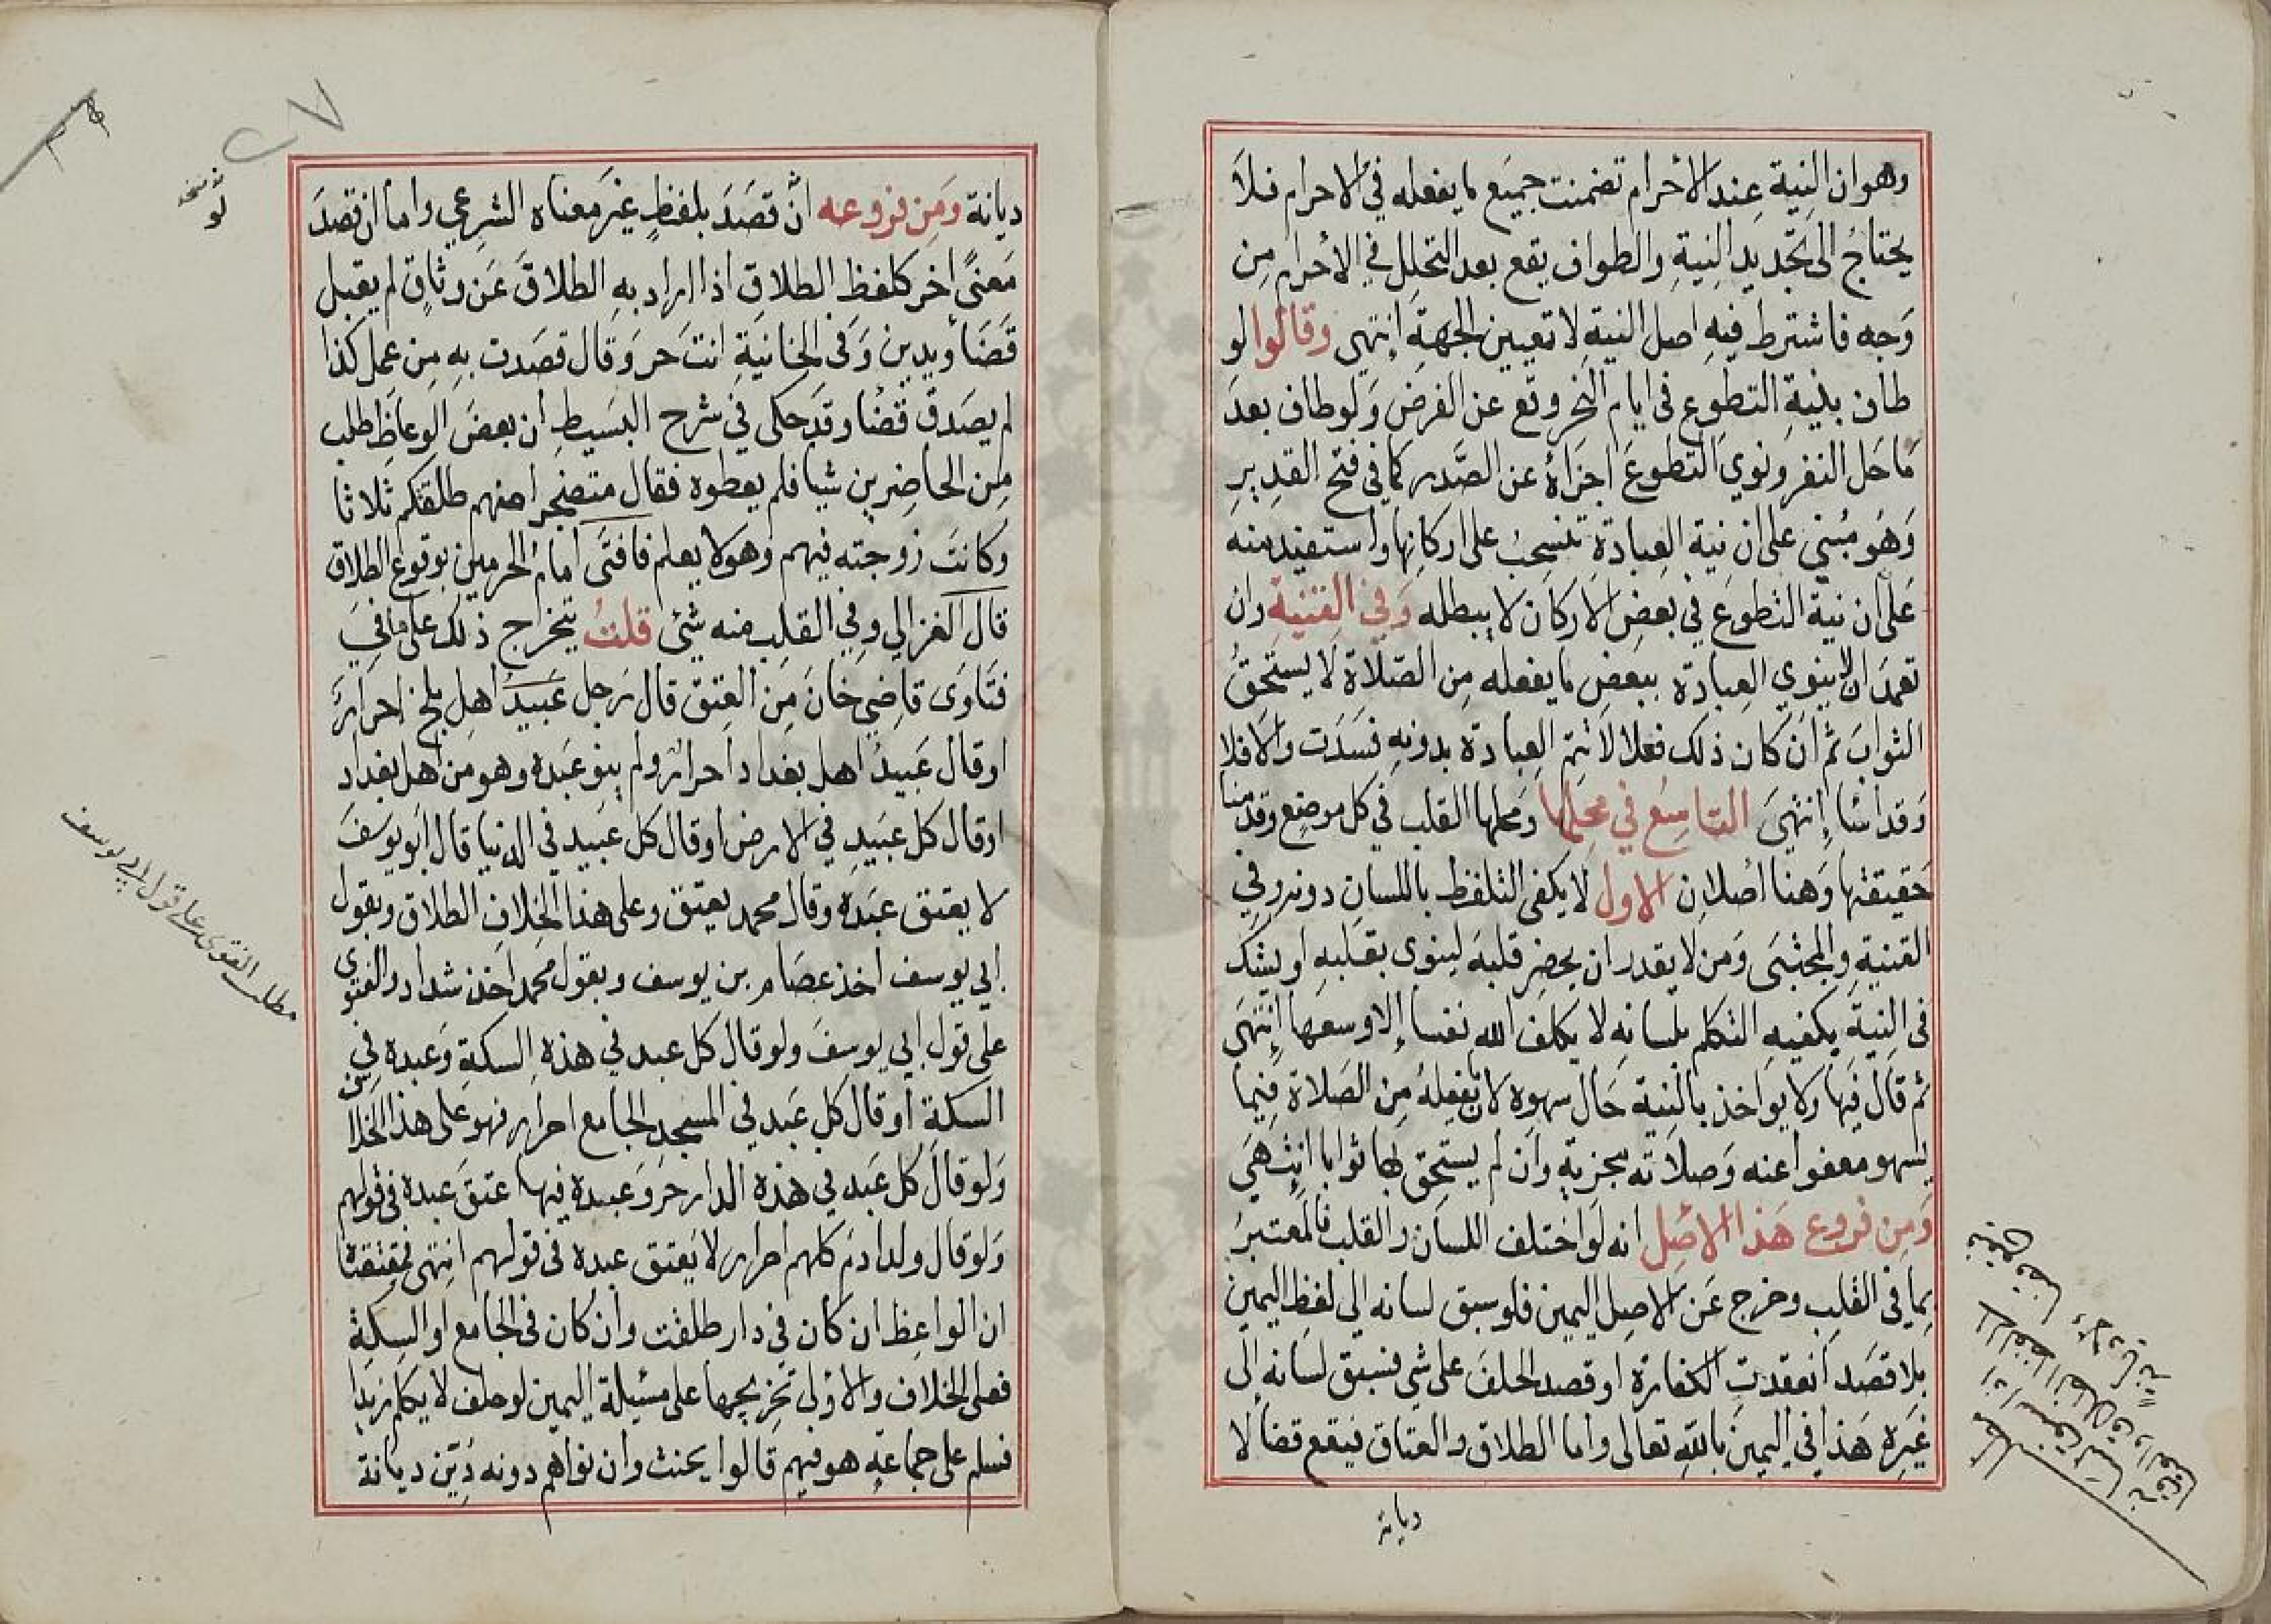 وهو ان النية عند الاحرام تضمنت جميع ما يفعله في الاحرام فلا
يحتاج الى تجديد النية والطواف يقع بعد التحلل في الاحرام من
وجه فاشترط فيه اصل النية لا تعيين الجهة انتهى وقالوا لو
طاف بنية التطوع في ايام النحر وقع عن الفرض ولو طاف بعد
ما حل النفر ونوي التطوع اجزاه عن الصدر كما في فتح القدير
وهو مبني على ان نية العبادة تنسحب على اركانها واستفيد منه
على ان نية التطوع في بعض الاركان لا يبطله وفي القنية وان
تعمد ان لا ينوي العبادة ببعض ما يفعله من الصلاة لا يستحق
الثواب ثم ان كان ذلك فعلا لا تتم العبادة بدونه فسدت والا فلا
وقد اسا انتهى التاسع في محلها ومحلها القلب في كل موضع وقدمنا
حقيقتها وهنا اصلان الاول لا يكفي التلفظ باللسان دونه وفي
القنية والمجتبى ومن لا يقدر ان يحضر قلبه لينوى بقلبه او يشك
في النية يكفيه التكلم بلسانه لا يكلف الله نفسا إلا وسعها انتهى
ثم قال فيها ولا يواخذ بالنية حال سهوه لان ما يفعله من الصلاة فيما
يسهو معفوا عنه وصلاته مجزية وان لم يستحق لها ثوابا انتهى
ومن فروع هذا الاصل انه لو اختلف اللسان والقلب فالمعتبر
بما في القلب وخرج عن الاصل اليمين فلو سبق لسانه الى لفظ اليمين
بلا قصد انعقدت الكفارة او قصد الحلف على شي فسبق لسانه الى
غيره هذا في اليمين بالله تعالى واما الطلاق والعتاق فيقع قضا لا
ديانة
ديانة ومن فروعه ان قصد بلفظ غير معناه الشرعي واما ان قصد
معنى اخر كلفظ الطلاق اذا اراد به الطلاق عن وثاق لم يقبل
قضا ويدين وفي الخانية انت حر وقال قصدت به من عمل كذا
لم يصدق قضا وقد حكى في شرح البسيط ان بعض الوعاظ طلب
من الحاضرين شيا فلم يعطوه فقال متضجرا منهم طلقتكم ثلاثا
وكانت زوجته فيهم وهو لا يعلم فافتى امام الحرمين بوقوع الطلاق
قال الغزالي وفي القلب منه شئ قلت يتخرج ذلك على ما في
فتاوى قاضي خان من العتق قال رجل عبيد اهل بلخ احرار
او قال عبيد اهل بغداد احرار ولم ينو عبده وهو من اهل بغداد
او قال كل عبيد في الارض او قال كل عبيد في الدنيا قال ابو يوسف
لا يعتق عبده وقال محمد يعتق وعلى هذا الخلاف الطلاق وبقول
ابي يوسف اخذ عصام بن يوسف وبقول محمد اخذ شداد والفتوى
على قول ابي يوسف ولو قال كل عبد في هذه السكة وعبده في
السكة او قال كل عبد في المسجد الجامع احرار فهو على هذا الخلاف
ولو قال كل عبد في هذه الدار حر وعبيده فيها عتق عبده في قولهم
ولو قال ولد ادم كلهم احرار لا يعتق عبده في قولهم انتهى فمقتضاه
ان الواعظ ان كان في دار طلقت وان كان في الجامع او السكة
فعلى الخلاف والاولى تخريجها على مسئلة اليمين لو حلف لا يكلم زيدا
فسلم على جماعة هو فيهم قالوا يحنث وان نواهم دونه دين ديانة
مطلب الفتوى على قول ابي يوسف